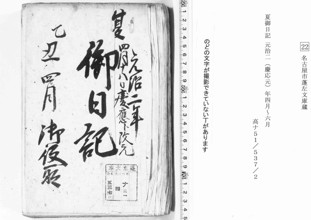 22 名古屋市蓬左文庫蔵
夏御日記 元治二(慶応元)年四月~六月
高ナ51/537/2
のどの文字が撮影できていない丁があります
元治二年
夏 四月八日慶應改元
御日記
乙丑 四月 御役所